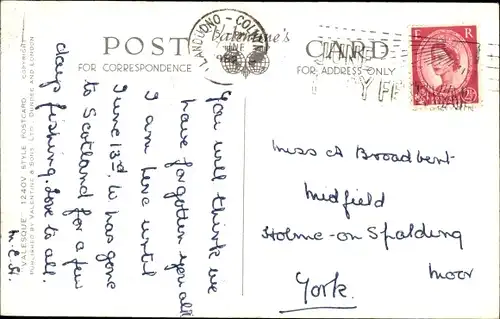 POST CARD
Valentine's
FOR CORRESPONDENCE
FOR ADDRESS ONLY
LLANDUDNO - COL
E R
You will think we
have forgotten you all!
I am here until
June 13th. W. has gone
to Scotland for a few
days fishing. Love to all.
M.C.H.
Miss A Broadbent
Midfield
Holme-on Spalding
Moor
York.
VALESQUE 1240V STYLE POSTCARD COPYRIGHT
PUBLISHED BY VALENTINE & SONS LTD. DUNDEE AND LONDON